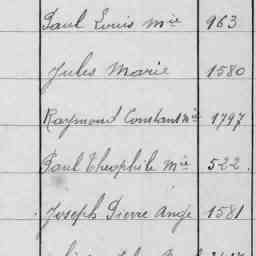 Paul Louis Mie 963
Jules Marie 1580
Raymond Constant Mie 1797
Paul Théophile Mie 522.
Joseph Pierre Ange 1581